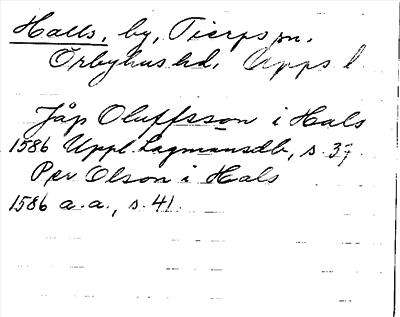 Halls, by, Tierps sn.
Örbyhus hd. Upps l.
Jåp Oluffsson i Hals
1586 Uppl. Lagmansdb, s. 37
Per Olson i Hals
1586 a.a., s. 41.